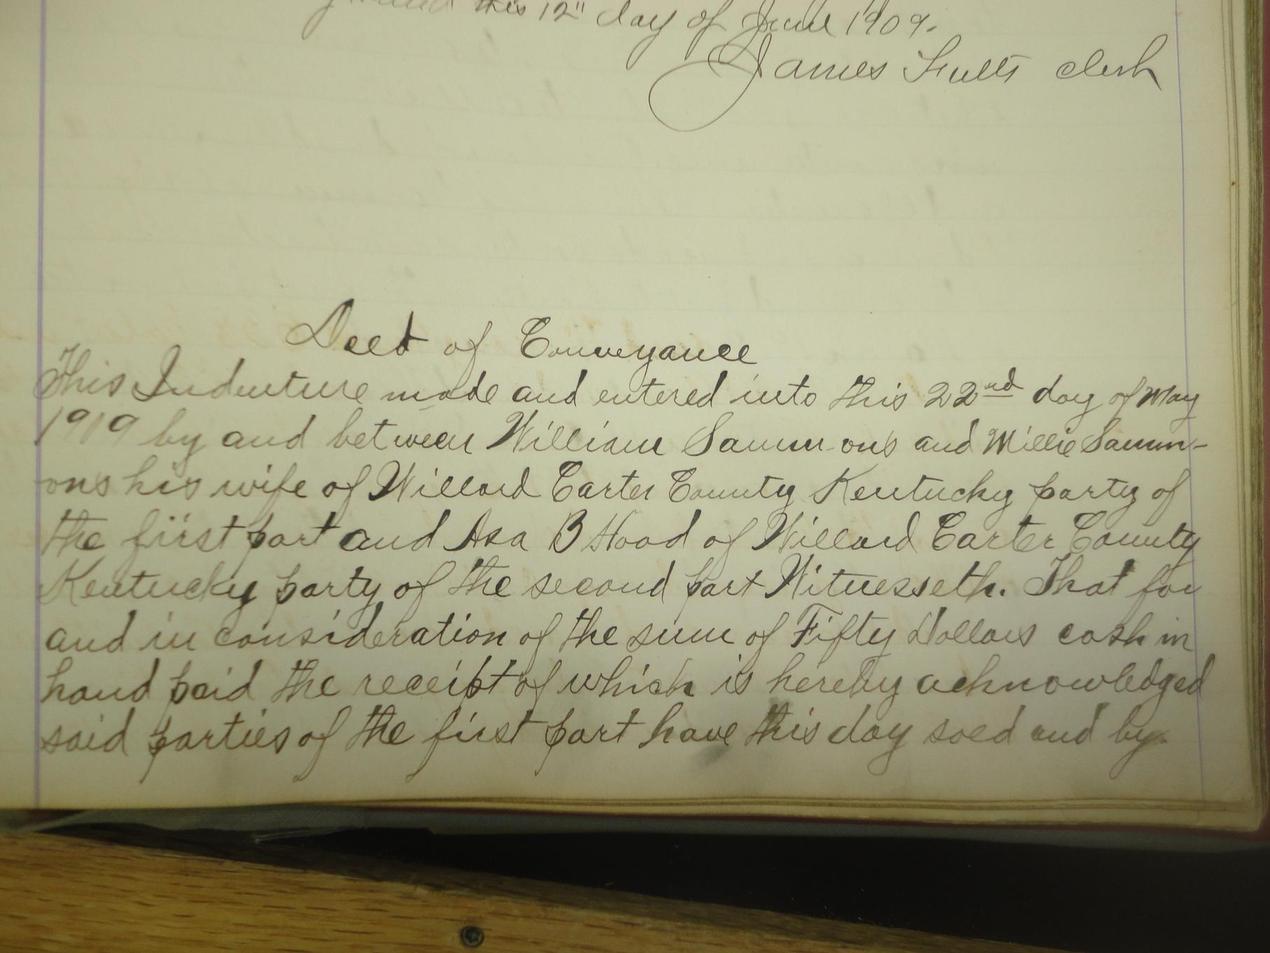 this 12" day of June 1909.
James Fults clerk
Deed of Conveyance
This Indenture made and entered into this 22nd day of May
1919 by and between William Sammons and Millie Samm-
ons his wife of Willard Carter County Kentucky party of
the first part and Asa B Hood of Willard Carter County
Kentucky party of the second part Witnesseth. That for
and in consideration of the sum of Fifty Dollars cash in
hand paid the receipt of which is hereby acknowledged
said parties of the first part have this day soed and by